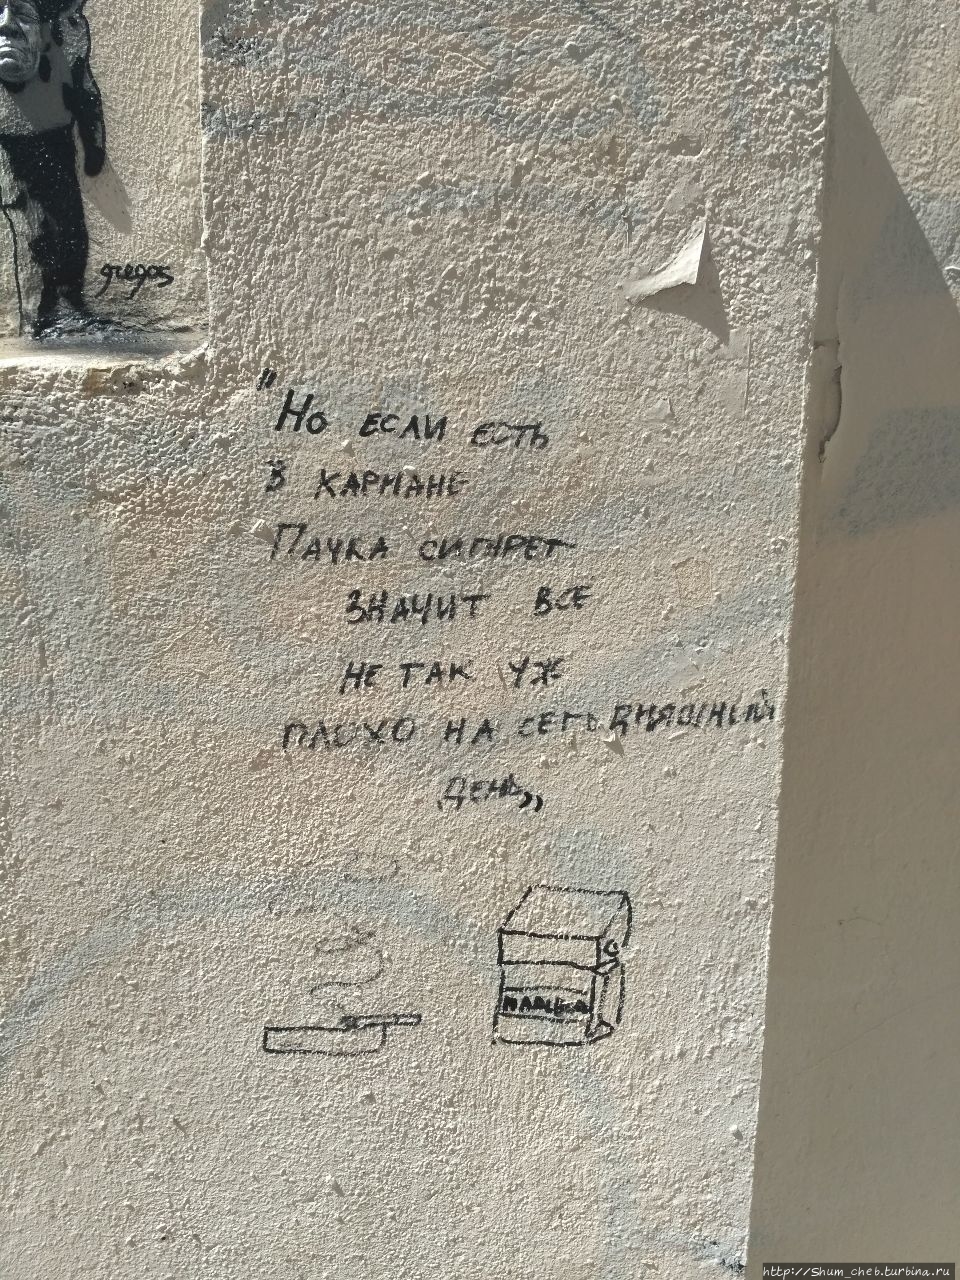 gregos
"Но если есть
В кармане
Пачка сигарет
значит все
не так уж
плохо на сегодняшний
день„
http://Shum_cheb.turbina.ru